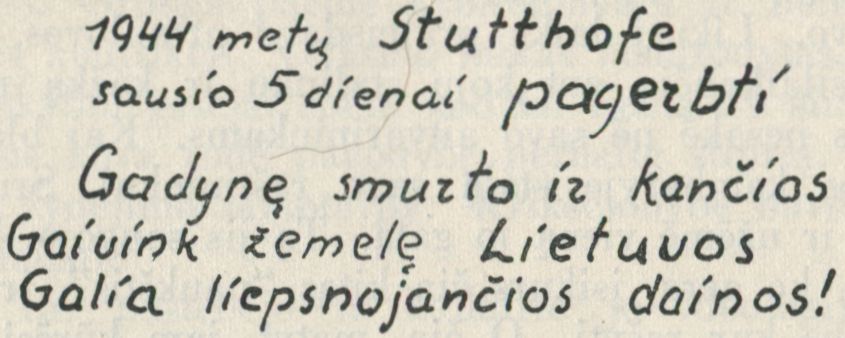 1944 metų Stutthofe
sausio 5 dienai pagerbti
Gadynę smurto ir kančios
Gaivink žemelę Lietuvos
Galia liepsnojančios dainos!